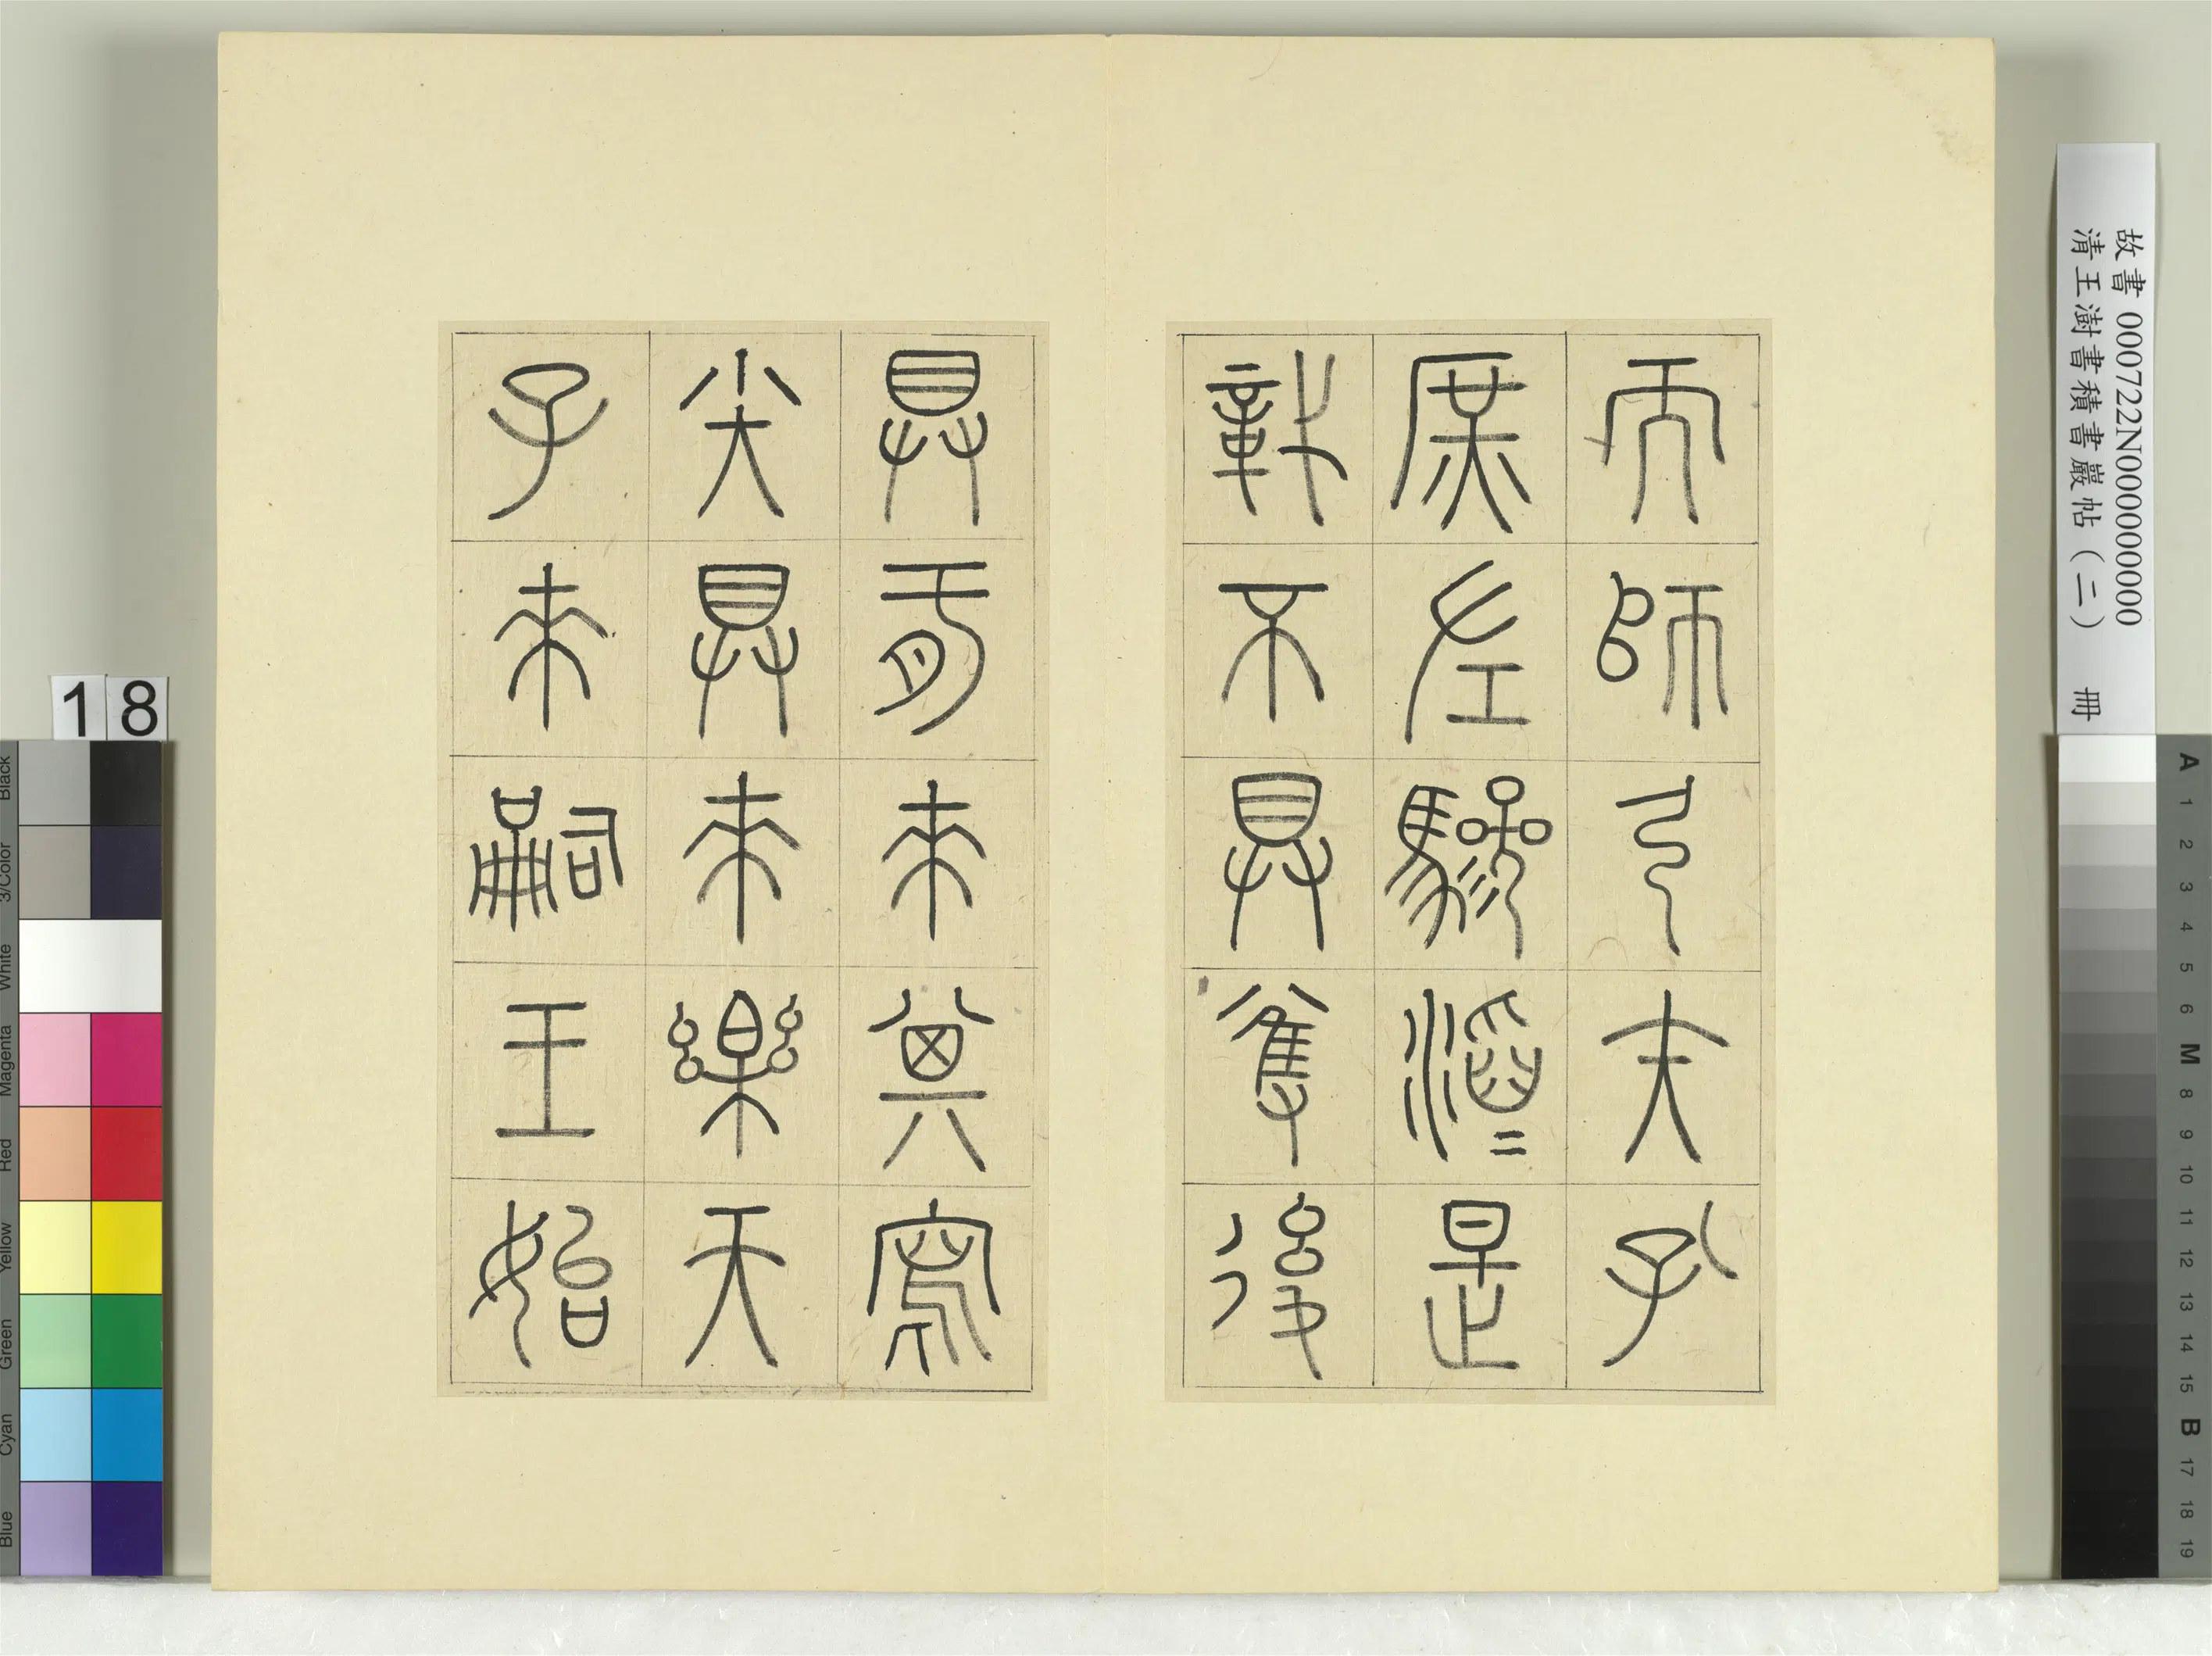 故書 000722N000000000
清王澍書積書巖帖(二) 冊
而師弓矢孔
庶左驂滔=是
戠不具奪復
具肝來其寫
小大具來樂天
子來嗣王始
18
Black
3/Color
White
Magenta
Red
Yellow
Green
Cyan
Blue
A
1
2
3
4
5
6
M
8
9
10
11
12
13
14
15
B
17
18
19